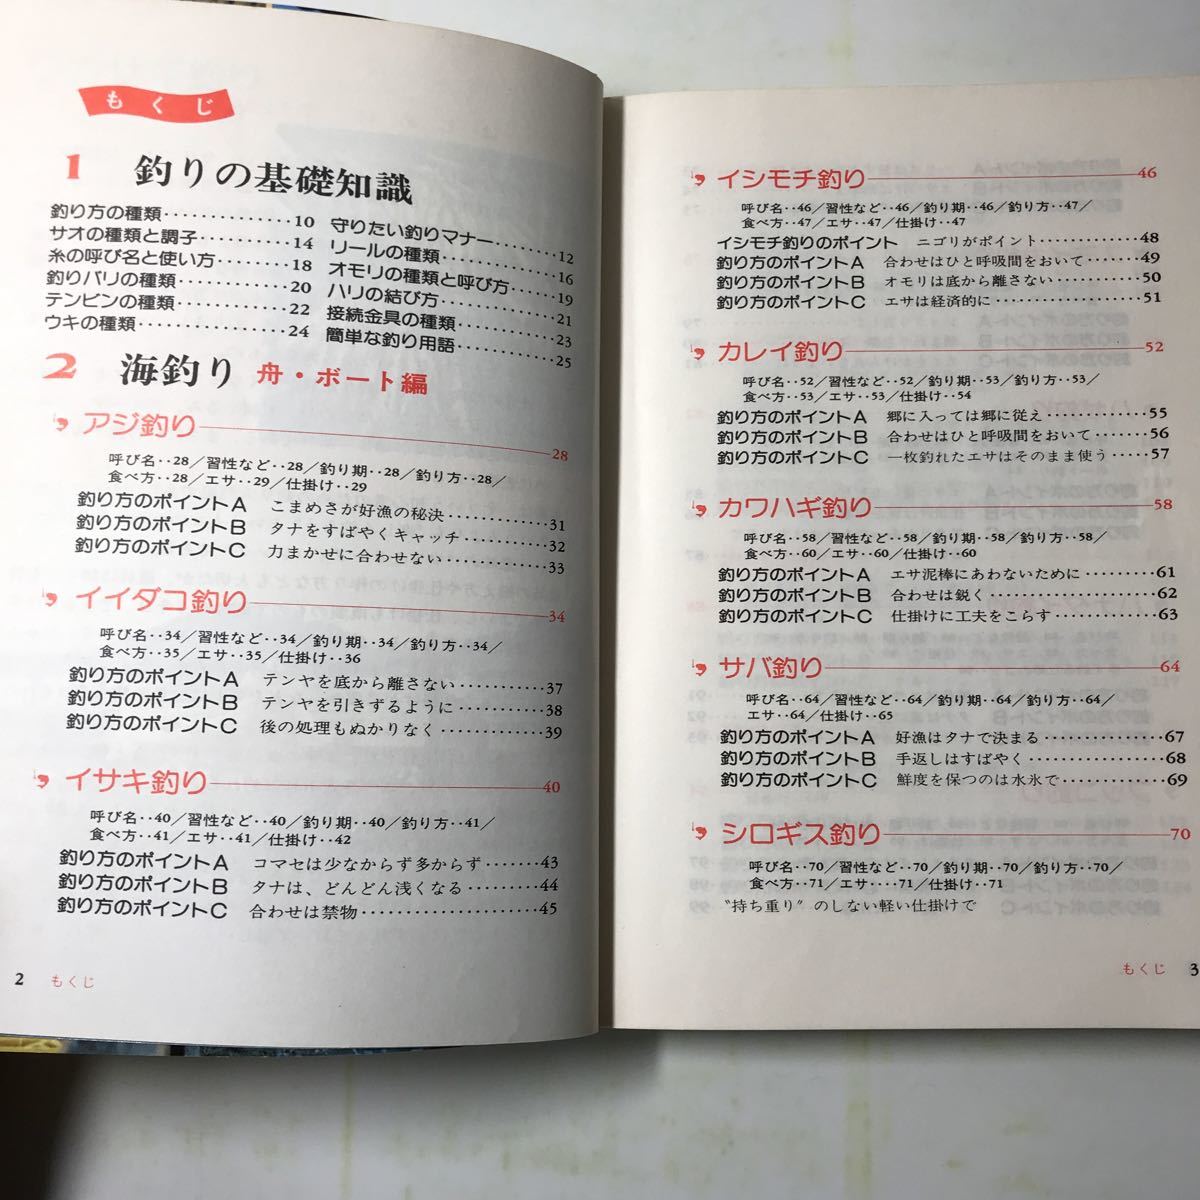 もくじ
1 釣りの基礎知識
釣り方の種類‥‥‥‥‥‥‥10
サオの種類と調子‥‥‥‥‥14
糸の呼び名と使い方‥‥‥‥18
釣りバリの種類‥‥‥‥‥‥20
テンビンの種類‥‥‥‥‥‥22
ウキの種類‥‥‥‥‥‥‥‥24
守りたい釣りマナー‥‥‥‥12
リールの種類‥‥‥‥‥‥‥16
オモリの種類と呼び方‥‥‥19
ハリの結び方‥‥‥‥‥‥‥21
接続金具の種類‥‥‥‥‥‥23
簡単な釣り用語‥‥‥‥‥‥25
2 海釣り 舟・ボート編
アジ釣り 28
呼び名‥28／習性など‥28／釣り期‥28／釣り方‥28／
食べ方‥28／エサ‥29／仕掛け‥29
釣り方のポイントA こまめさが好漁の秘決‥‥‥‥‥31
釣り方のポイントB タナをすばやくキャッチ‥‥‥‥32
釣り方のポイントC 力まかせに合わせない‥‥‥‥‥33
イイダコ釣り 34
呼び名‥34／習性など‥34／釣り期‥34／釣り方‥34／
食べ方‥35／エサ‥35／仕掛け‥36
釣り方のポイントA テンヤを底から離さない‥‥‥‥37
釣り方のポイントB テンヤを引きずるように‥‥‥‥38
釣り方のポイントC 後の処理もぬかりなく‥‥‥‥‥39
イサキ釣り 40
呼び名‥40／習性など‥40／釣り期‥40／釣り方‥41／
食べ方‥41／エサ‥41／仕掛け‥42
釣り方のポイントA コマセは少なからず多からず‥‥43
釣り方のポイントB タナは、どんどん浅くなる‥‥‥44
釣り方のポイントC 合わせは禁物‥‥‥‥‥‥‥‥‥45
2 もくじ
イシモチ釣り 46
呼び名‥46／習性など‥46／釣り期‥46／釣り方‥47／
食べ方‥47／エサ‥47／仕掛け‥47
イシモチ釣りのポイント ニゴリがポイント‥‥‥‥‥48
釣り方のポイントA 合わせはひと呼吸間をおいて‥‥49
釣り方のポイントB オモリは底から離さない‥‥‥‥50
釣り方のポイントC エサは経済的に‥‥‥‥‥‥‥‥51
カレイ釣り 52
呼び名‥52／習性など‥52／釣り期‥53／釣り方‥53／
食べ方‥53／エサ‥53／仕掛け‥54
釣り方のポイントA 郷に入っては郷に従え‥‥‥‥‥55
釣り方のポイントB 合わせはひと呼吸間をおいて‥‥56
釣り方のポイントC 一枚釣れたエサはそのまま使う‥‥57
カワハギ釣り 58
呼び名‥58／習性など‥58／釣り期‥58／釣り方‥58／
食べ方‥60／エサ‥60／仕掛け‥60
釣り方のポイントA エサ泥棒にあわないために‥‥‥61
釣り方のポイントB 合わせは鋭く‥‥‥‥‥‥‥‥‥62
釣り方のポイントC 仕掛けに工夫をこらす‥‥‥‥‥63
サバ釣り 64
呼び名‥64／習性など‥64／釣り期‥64／釣り方‥64／
エサ‥64／仕掛け‥65
釣り方のポイントA 好漁はタナで決まる‥‥‥‥‥‥67
釣り方のポイントB 手返しはすばやく‥‥‥‥‥‥‥68
釣り方のポイントC 鮮度を保つのは水氷で‥‥‥‥‥69
シロギス釣り 70
呼び名‥70／習性など‥70／釣り期‥70／釣り方‥70／
食べ方‥71／エサ‥‥71／仕掛け‥71
〝持ち重り〟のしない軽い仕掛けで
もくじ 3